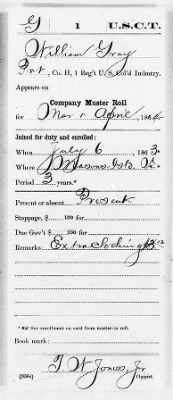 G 1 U.S.C.T.
William Gray
Pvt, Co. H, 1 Reg't U.S. Col'd Infantry.
Appears on
Company Muster Roll
for Mar & April, 1864.
Joined for duty and enrolled:
When July 6, 1863.
Where Masons Isl'd Va.
Period 3 years.*
Present or absent Present
Stoppage, $ 100 for
Due Gov't $ 100 for
Remarks: Extra
*See enrollment on card from muster-in roll.
Book mark:
T W Jones, Jr
(358c) Copyist.